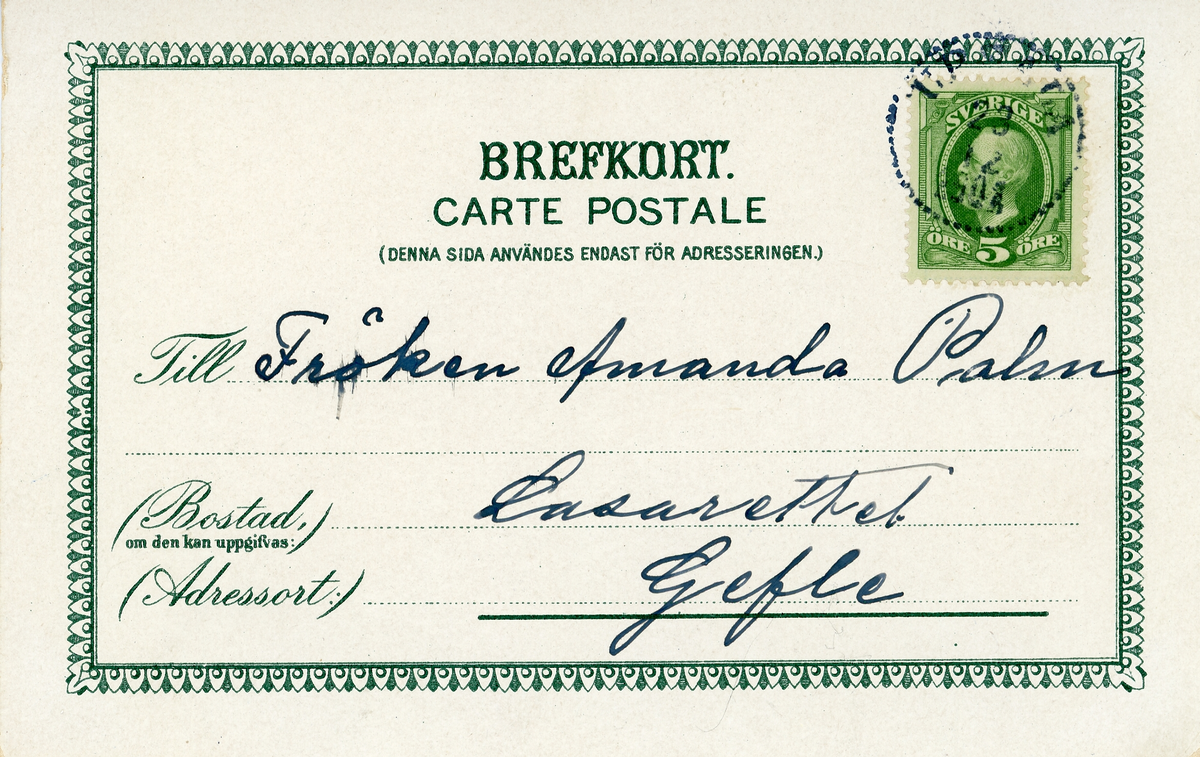 BREFKORT.
CARTE POSTALE
(DENNA SIDA ANVÄNDES ENDAST FÖR ADRESSERINGEN.)
SVERIGE
ÖRE 5 ÖRE
Till Fröken Amanda Palm
(Bostad,) Lasarettet
om den kan uppgifvas:
(Adressort:) Gefle